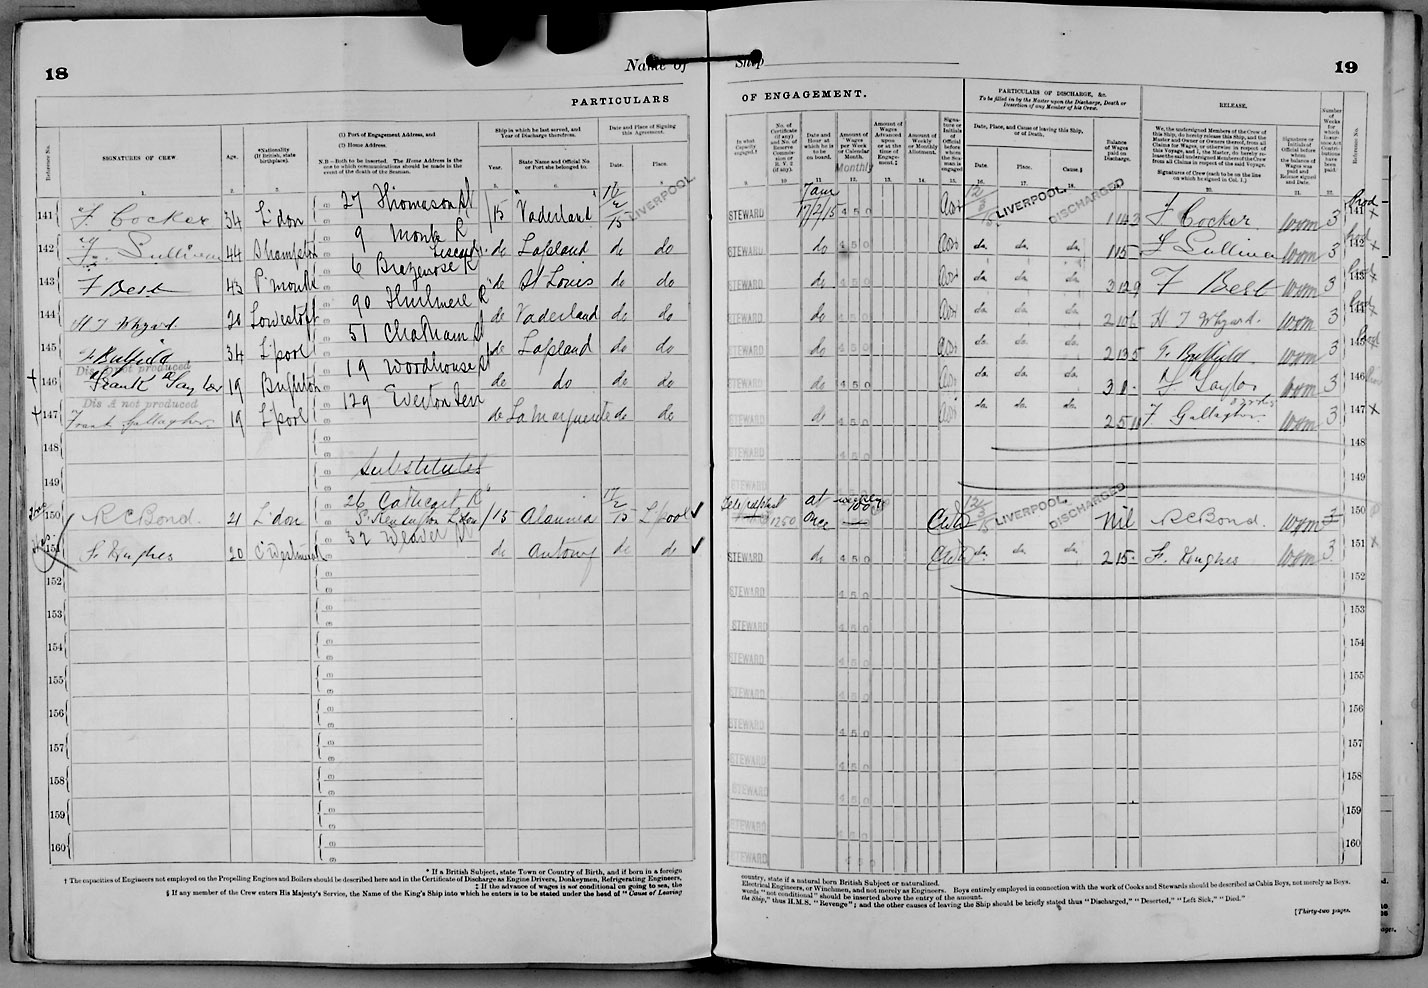 18
Name of
Ship
19
PARTICULARS
OF ENGAGEMENT.
PARTICULARS OF DISCHARGE, &c.
To be filled in by the Master upon the Discharge, Death or Desertion of any Member of his Crew.
RELEASE.
Reference No.
SIGNATURES OF CREW.
Age.
*Nationality (If British, state birthplace).
(1) Port of Engagement Address, and
(2) Home Address.
N.B.—Both to be inserted. The Home Address is the one to which communications should be made in the event of the death of the Seaman.
Ship in which he last served, and Year of Discharge therefrom.
Year.
State Name and Official No. or Port she belonged to.
Date and Place of Signing this Agreement.
Date.
Place.
In what Capacity engaged.†
No. of Certificate (if any) and No. of Reserve Commission or R. V. 2 (if any).
Date and Hour at which he is to be on board.
Amount of Wages per Week or Calendar Month.
Monthly
Amount of Wages Advanced upon or at the time of Engagement.‡
Amount of Weekly or Monthly Allotment.
Signature or Initials of Officer before whom the Seaman is engaged
Date, Place, and Cause of leaving this Ship, or of Death.
Date.
Place.
Cause.§
Balance of Wages paid on Discharge.
We, the undersigned Members of the Crew of this Ship, do hereby release this Ship, and the Master and Owner or Owners thereof, from all Claims for Wages, or otherwise in respect of this Voyage, and I, the Master, do hereby release the said undersigned Members of the Crew from all Claims in respect of the said Voyage.
Signatures of Crew (each to be on the line on which he signed in Col. 1.)
Signature or Initials of Official before whom the balance of Wages was paid and Release signed and Date.
Number of Weeks for which Insurance Act Contributions have been paid.
Reference No.
141 F. Cocker 34 L'don 27 Thomason St /15 Vaderland 12/2/15 LIVERPOOL STEWARD 7am 17/2/15 450 12/3/15 LIVERPOOL DISCHARGED F Cocker 3 141
142 Sullivan 44 S'hampton 9 Monk R Liscard do Lapland do do STEWARD do 450 do do do 3 142
143 F Best 43 P'mouth 6 Brazenose R do St Louis do do STEWARD do 450 do do do F Best 3 143
144 H T Whyard 20 Lowestoft 90 Thirlmere R do Vaderland do do STEWARD do 450 do do do H T Whyard. 3 144
145 34 L'pool 51 Chatham St do Lapland do do STEWARD do 450 do do do 3 145
Dis A not produced
146 Frank Taylor 19 Brighton 19 Woodhouse St do do do do STEWARD do 450 do do do F Taylor 3 146
Dis A not produced
147 Frank Gallagher 19 L'pool 129 Everton Terr do La Marguerite do do STEWARD do 450 do do do F Gallagher 3 147
148 STEWARD 450 148
149 Substitutes STEWARD 450 149
150 R C Bond. 21 L'don 26 Cathcart R S. Kensington L'don /15 Alaunia 12/2/15 L'pool ✓ Telegraphist 1250 at once LIVERPOOL DISCHARGED Nil R C Bond. 150
151 Hughes 20 32 Weaver St do Antony do do ✓ STEWARD do 450 do do do 2 15 Hughes 3 151
152 STEWARD 450 152
153 STEWARD 450 153
154 STEWARD 450 154
155 STEWARD 450 155
156 STEWARD 450 156
157 STEWARD 450 157
158 STEWARD 450 158
159 STEWARD 450 159
160 STEWARD 450 160
* If a British Subject, state Town or Country of Birth, and if born in a foreign
country, state if a natural born British Subject or naturalized.
† The capacities of Engineers not employed on the Propelling Engines and Boilers should be described here and in the Certificate of Discharge as Engine Drivers, Donkeymen, Refrigerating Engineers,
Electrical Engineers, or Winchmen, and not merely as Engineers. Boys entirely employed in connection with the work of Cooks and Stewards should be described as Cabin Boys, not merely as Boys.
‡ If the advance of wages is not conditional on going to sea, the
words "not conditional" should be inserted above the entry of the amount.
§ If any member of the Crew enters His Majesty's Service, the Name of the King's Ship into which he enters is to be stated under the head of "Cause of Leaving
the Ship," thus H.M.S. "Revenge"; and the other causes of leaving the Ship should be briefly stated thus "Discharged," "Deserted," "Left Sick," "Died."
[Thirty-two pages.